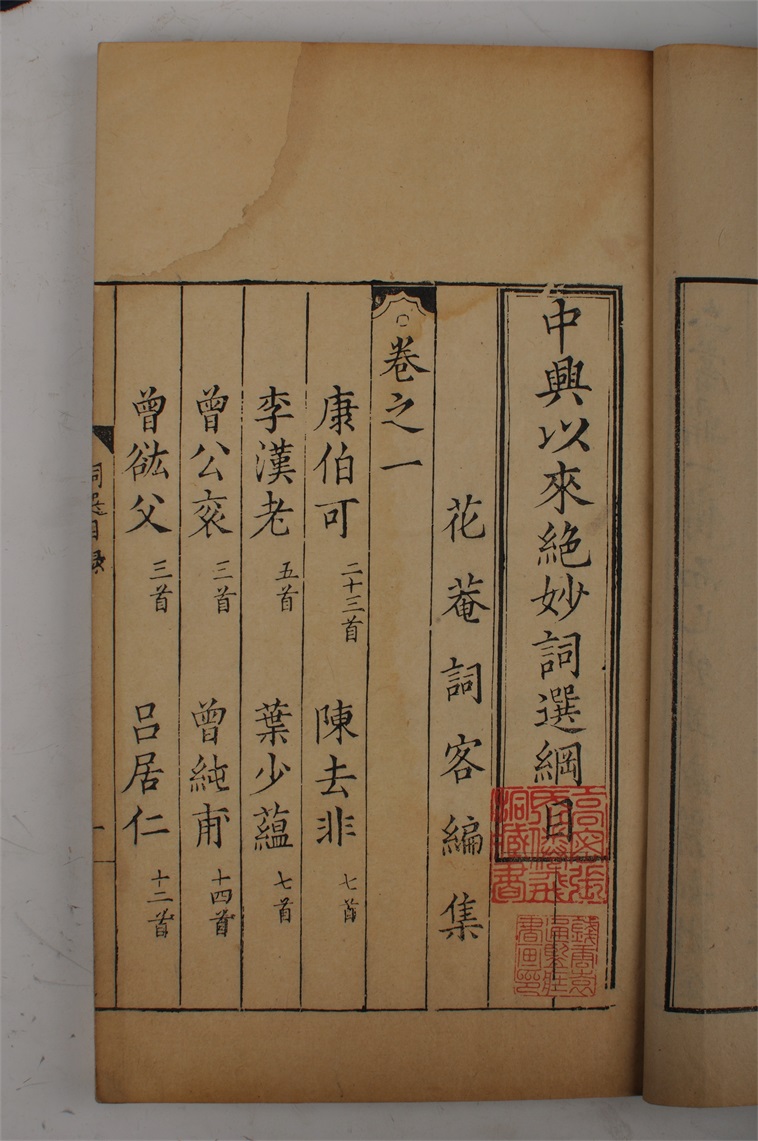 中興以來絶妙詞選綱目
花菴詞客編集
卷之一
康伯可 二十三首 陳去非 七首
李漢老 五首 葉少蘊 七首
曾公衮 三首 曾純甫 十四首
曾紘父 三首 呂居仁 十二首
詞選目録 一